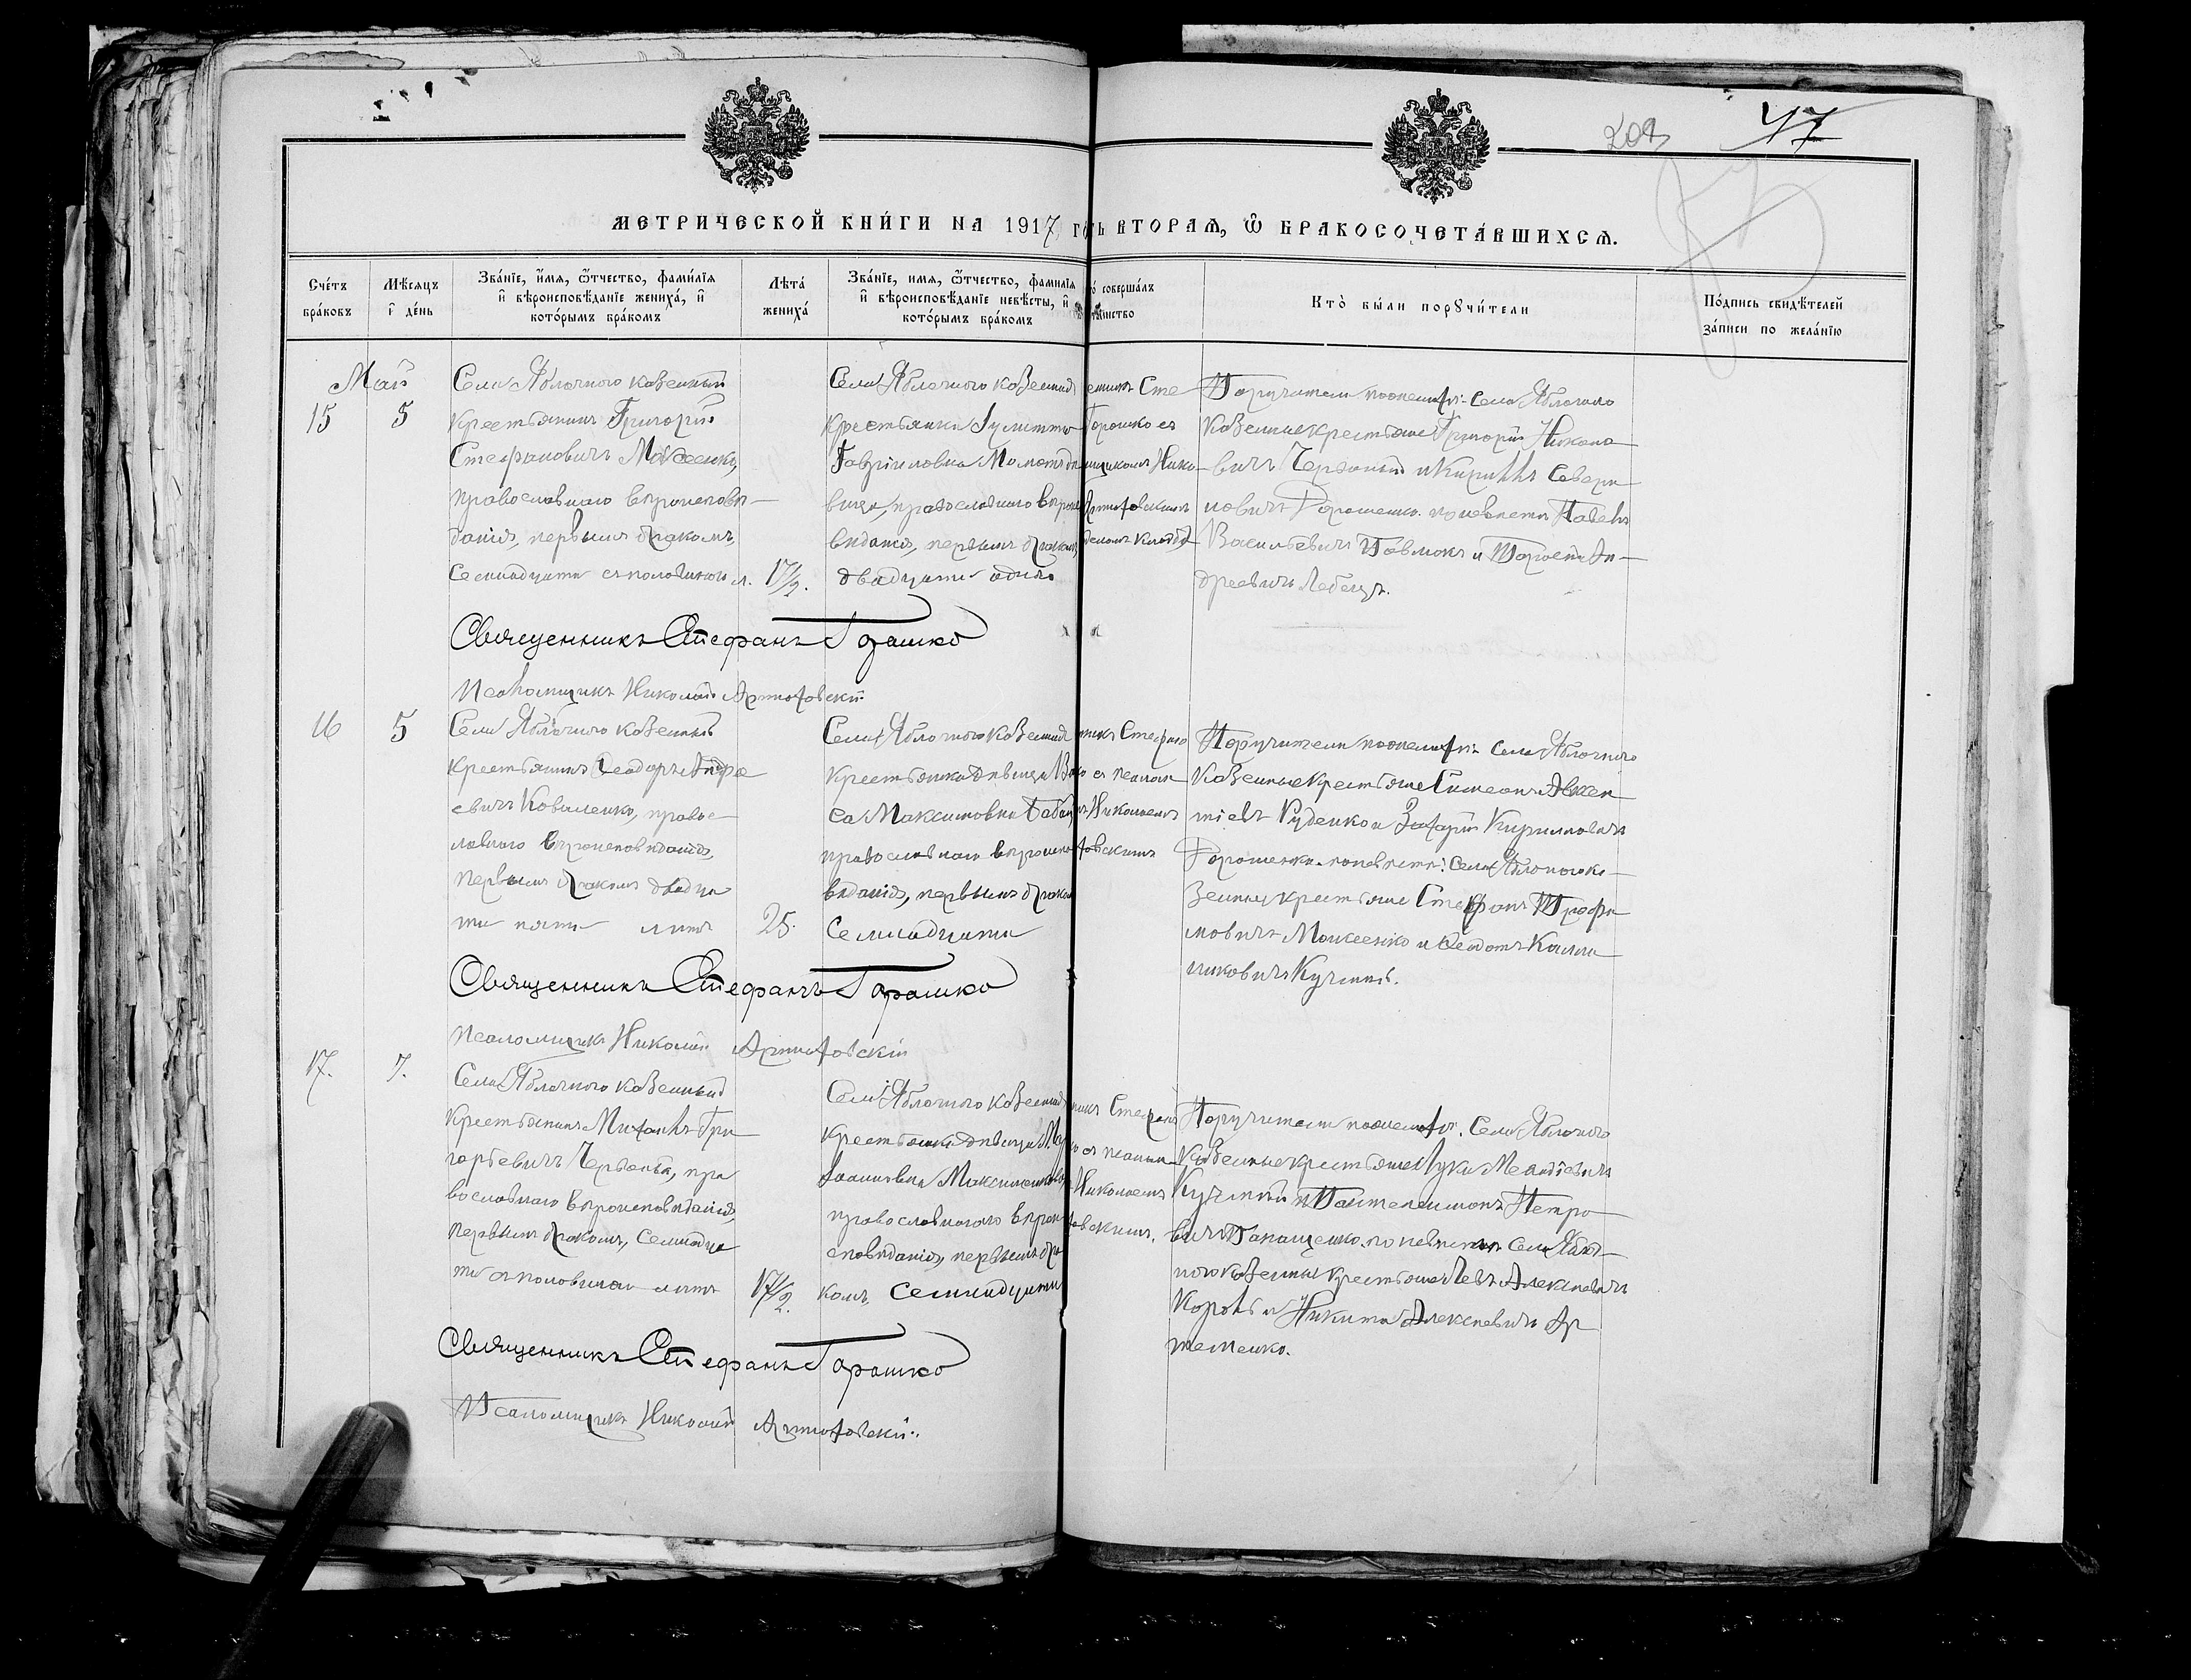 47
МЕТРИЧЕСКОЙ КНИ́ГИ НА 1917 го ь ВТОРАѦ, Ѡ БРАКОСОЧЕТА́ВШИХСѦ.
Сче́тъ
бра́ковъ
Мѣ́сяцъ
и҆ де́нь
Зва́нїе, и҆́мя, ѻ҆́тчество, фами́лїя
и҆ вѣроисповѣ́данїе жениха́, и҆
кото́рымъ бра́комъ
Лѣта́
жениха́
Зва́нїе, имя, ѻ҆́тчество, фамилїя
и҆ вѣроисповѣ́данїе невѣ́сты, и҆
кото́рымъ бра́комъ
о́ соверша́лъ
та́инство
Кто̀ бы́ли порꙋчи́тели
По́дпись свидѣ́телей
за́писи по жела́нїю
Май
15
5
Села Яблочного казенный
крестьянинъ Григорій
Стефановичъ Моисеенко,
православнаго вѣроисповѣ-
данія, первымъ бракомъ,
семнадцати съ половиною л.
17 1/2.
Села Яблочного казенная
крестьянка
Гавріиловна
вица, православного вѣроис
вѣданія, первымъ бракомъ,
двадцати одного
Сте
Горошко съ
Нико
Артюховскимъ
Поручители по женихѣ: села Яблочного
казенные крестьяне Григорій Никано
вичъ Черваный и Кириллъ Севери
новичъ Дорошенко. по невѣстѣ Павелъ
Васильевичъ и Ан-
дреевичъ Лебець.
Священникъ Стефанъ Горошко
Псаломщикъ Николай Артюховскій
16
5
Села Яблочного казенный
крестьянинъ Ѳеодоръ Андре
евичъ Коваленко, правос-
лавного вѣроисповѣданія,
первымъ бракомъ двадца
ти пяти лѣтъ
25.
Села Яблочного казенная
крестьянка дѣвица
са Максимовна
православнаго вѣроиспо
вѣданія, первымъ бракомъ
семнадцати
никъ Стефано
ко съ псалом
ъ Николаемъ
ховскимъ
Поручители по женихѣ: села Яблочного
казенные крестьяне Симеонъ Авксен
тіевъ Руденко и Захарій Кирилловичъ
Дорошенко. по невѣстѣ: села Яблочного ка-
зенные крестьяне Стефанъ Трофи
мовичъ Моисеенко и Ѳеодотъ Калли
никовичъ Кучмій.
Священникъ Стефанъ Горошко
Псаломщикъ Николай Артюховскій
17.
7.
Села Яблочного казенный
крестьянинъ Михаилъ Гри
горьевичъ Черваный, пра
вославнаго вѣроисповѣданія,
первымъ бракомъ, семнадца
ти съ половиною лѣтъ
17 1/2.
Села Яблочного казенная
крестьянка дѣвица
Іоанновна
православного вѣроис
сповѣданія, первымъ бра
комъ, семнадцати
никъ Стефанъ
ко съ псалом
Николаемъ
овскимъ.
Поручители по женихѣ: села Яблочного
казенные крестьяне Лука
Кучмій и Пантелеимонъ Петро
вичъ Панащенко. по невѣстѣ села Яблоч-
ного казенные крестьяне Левъ Алексѣевичъ
Король и Никита Алексѣевичъ Ар
теменко.
Священникъ Стефанъ Горошко
Псаломщикъ Николай Артюховскій.